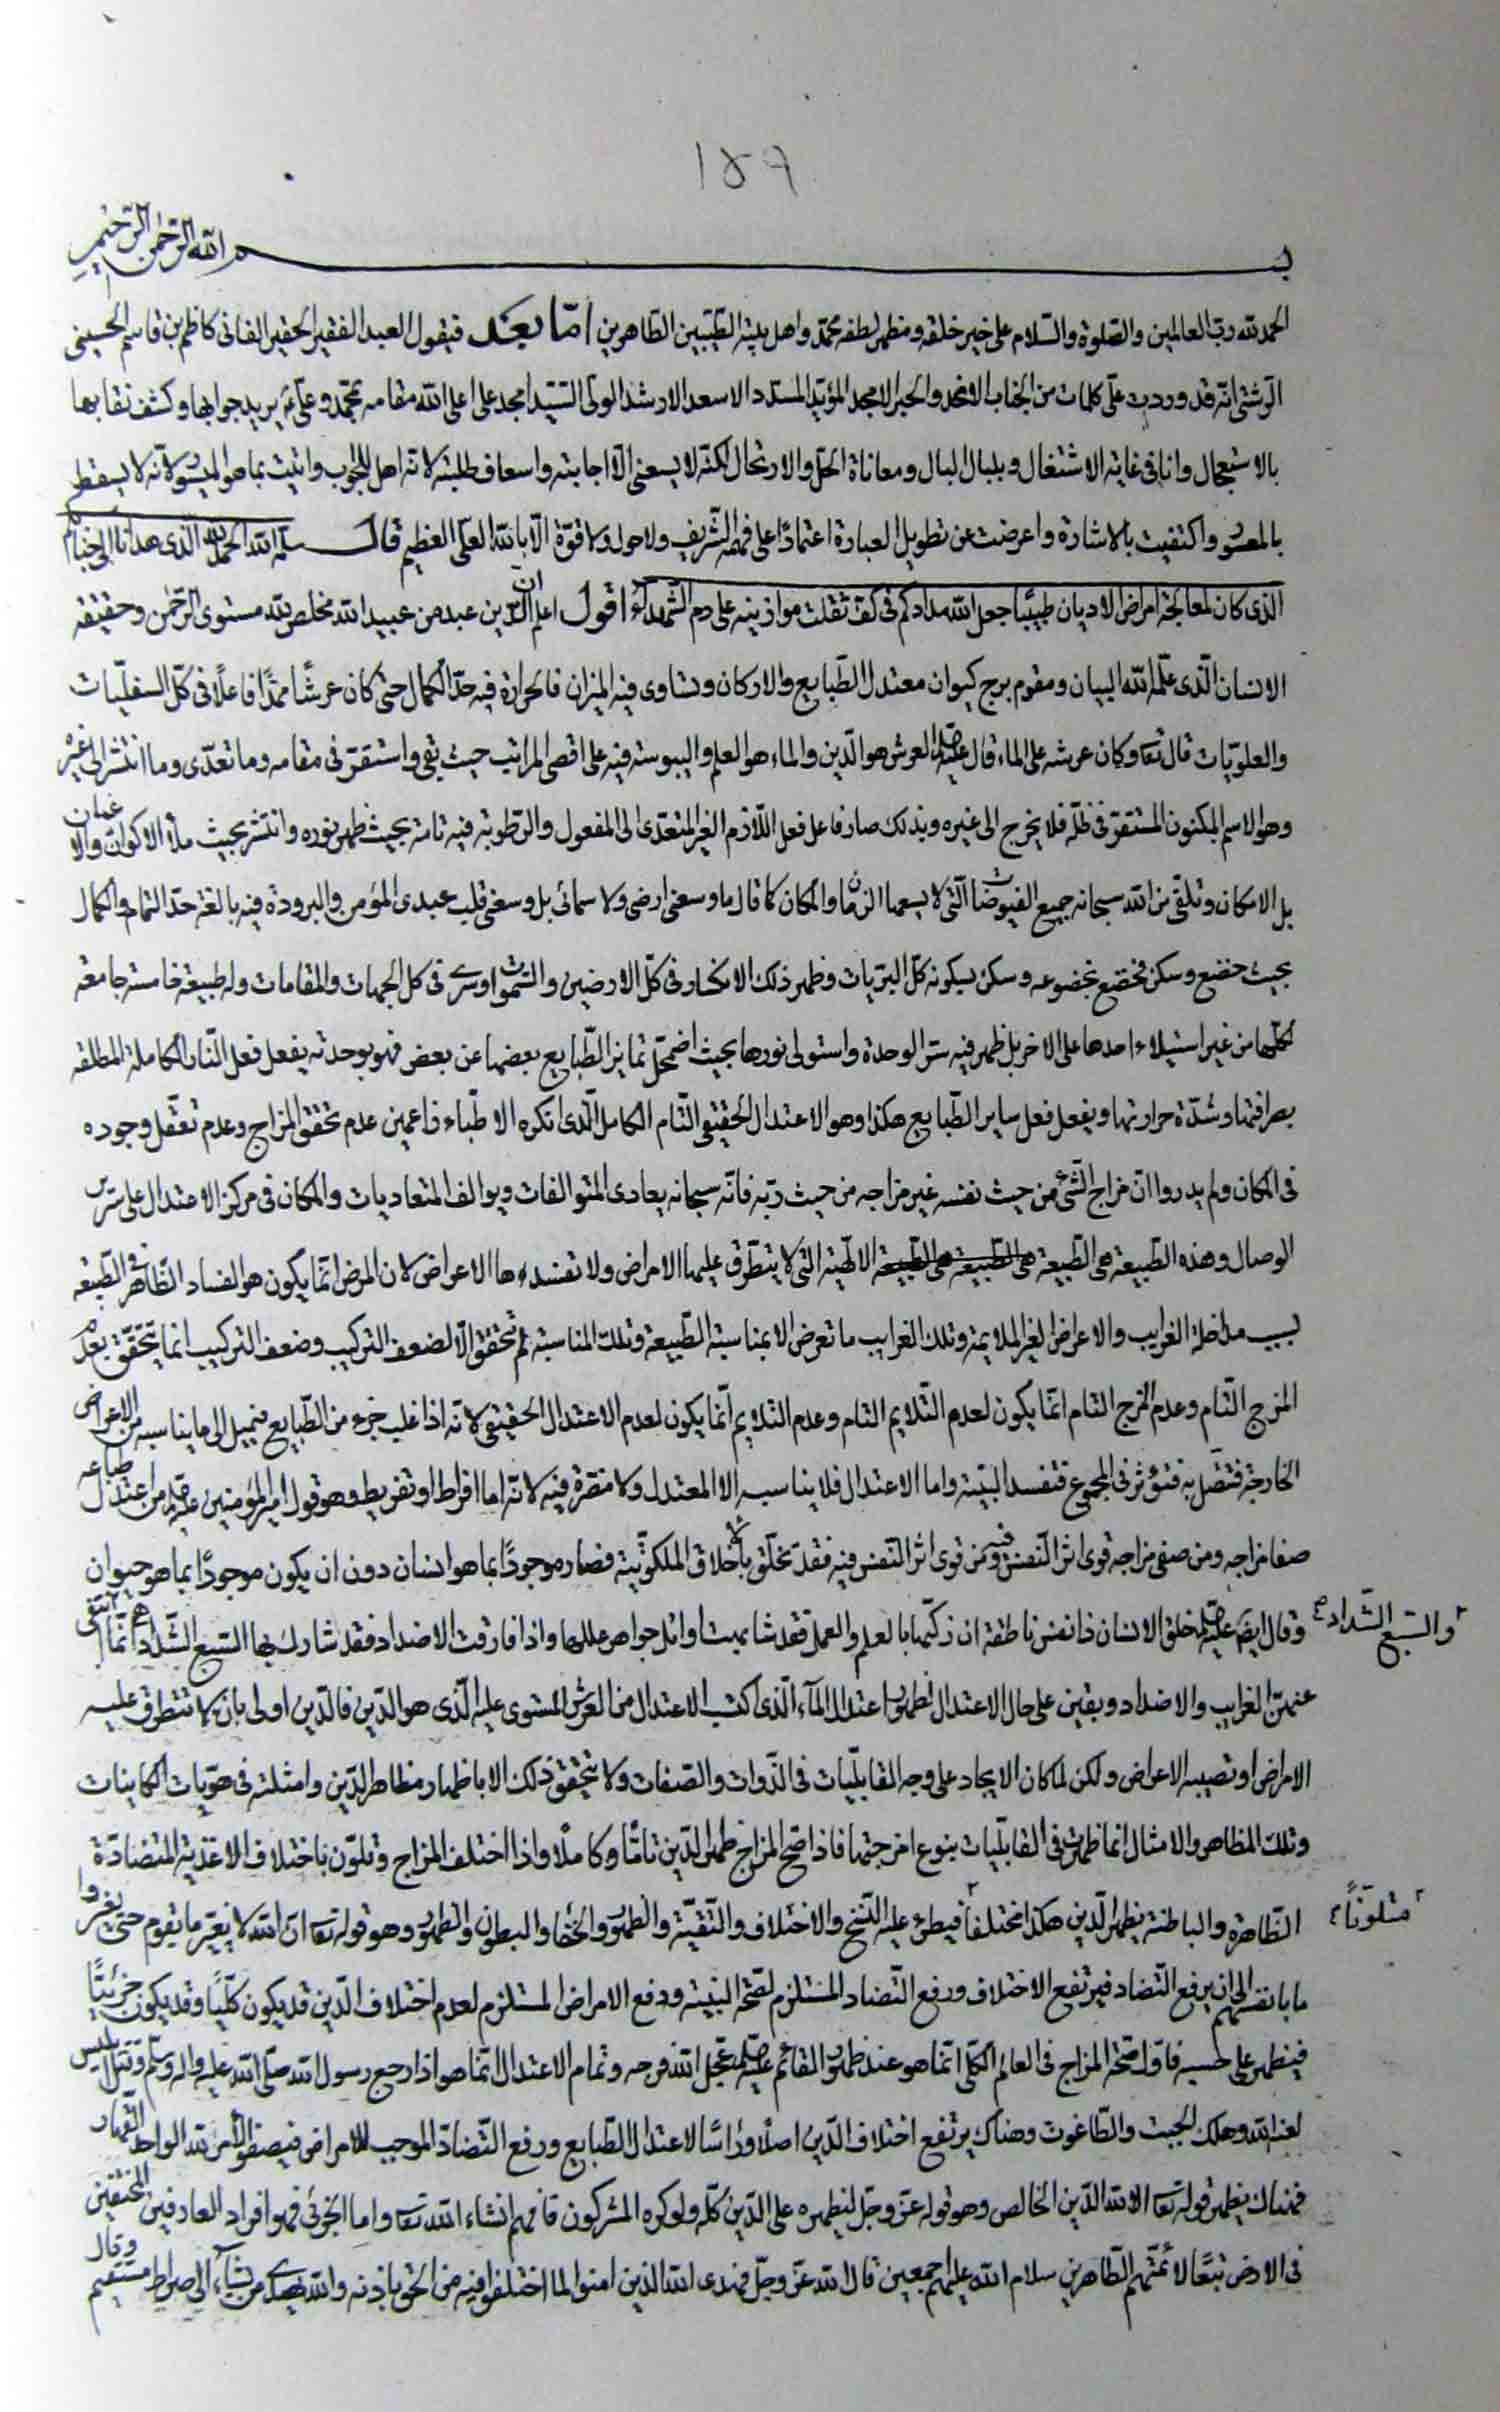 ١٥٩
بسم الله الرحمن الرحيم
الحمد لله رب العالمين والصلوة والسلام على خير خلقه ومظهر لطفه محمد واهل بيته الطيبين الطاهرين اما بعد فيقول العبد الفقير الحقير الفانى كاظم بن قاسم الحسينى
الرشتى انه قد وردت علىّ كلمات من الجناب الافخم والحبر الامجد المؤيد المسدد الاسعد الارشد المولى السيد امجد على اعلى الله مقامه بمحمد وعلى يريد جوابها وكشف نقابها
بالاستعجال وانا فى غاية الاشتغال وبلبال البال ومعاناة الحل والارتحال لكنه لا يسعنى الا اجابته واسعاف طلبته لانه اهل للجواب واتيت بما هو الميسور لانه لا يسقط
بالمعسور واكتفيت بالاشارة واعرضت عن تطويل العبارة اعتمادًا على فهمه الشريف ولا حول ولا قوة الا بالله العلى العظيم قال سلمه الله الحمد لله الذى هدانا الى جناب
الذى كان لمعالجة امراض الاديان طبيبًا جعل الله مدادكم فى كف ثقلت موازينه على دم الشهداء اقول اعلم ان الدين عبد من عبيد الله مخلص لله مستوى الرحمن وحقيقة
الانسان الذى علمه الله البيان ومقوم برج كيوان معتدل الطبايع والاركان وتساوى فيه الميزان فالحرارة فيه حد الكمال حتى كان عرشًا ممدًا فاعلًا فى كل السفليات
والعلويات قال تعا وكان عرشه على الماء قال عليه السلام العرش هو الدين والماء هو العلم واليبوسة فيه على اقصى المراتب حيث بقى واستقر فى مقامه وما تعدى وما انتشر الى غيره
وهو الاسم المكنون المستقر فى ظله فلا يخرج الى غيره وبذلك صار فاعل فعل اللازم الغير المتعدى الى المفعول والرطوبة فيه تامة بحيث ظهر نوره وانتشر بحيث ملأ الاكوان والاعيان
بل الامكان وتلقى من الله سبحانه جميع الفيوضات التى لا يسعها الزمان والمكان كما قال ما وسعنى ارضى ولا سمائى بل وسعنى قلب عبدى المؤمن والبرودة فيه بالغة حد التمام والكمال
بحيث خضع وسكن فخضع بخضوعه وسكن بسكونه كل البريات وظهر ذلك الانكسار فى كل الارضين والسموات وسرى فى كل الجهات والمقامات وله طبيعة خامسة جامعة
لكلها من غير استيلاء احدها على الاخر بل ظهر فيه سر الوحدة واستولى نورها بحيث اضمحل تمايز الطبايع بعضها عن بعض فهو بوحدته يفعل فعل النار الكاملة المطلقة
بصرافتها وشدة حرارتها ويفعل فعل ساير الطبايع هكذا وهو الاعتدال الحقيقى التام الكامل الذى انكره الاطباء زاعمين عدم تحقق المزاج وعدم تعقل وجوده
فى المكان ولم يدروا ان مزاج الشئ من حيث نفسه غير مزاجه من حيث ربه فانه سبحانه يعادى المتوالفات ويوالف المتعاديات والمكان فى مركز الاعتدال على سرير
الوصال وهذه الطبيعة هى الطبيعة الالهية التى لا يتطرق عليها الامراض ولا تفسدها الاعراض لان المرض انما يكون هو الفساد الظاهر فى الطبيعة
بسبب مداخلة الغرايب والاعراض الغير الملايمة وتلك الغرايب ما تعرض الا بمناسبة الطبيعة وتلك المناسبة لم تحقق الا لضعف التركيب وضعف التركيب انما يتحقق بعدم
المزج التام وعدم المزج التام انما يكون لعدم التلايم التام وعدم التلايم انما يكون لعدم الاعتدال الحقيقى لانه اذا غلب جزء من الطبايع فيميل الى ما يناسبه من الاعراض
الخارجة فتتصل به فتؤثر فى المجموع فتفسد البنية واما الاعتدال فلا يناسبه الا المعتدل ولا مضرة فيه لانه اما افراط او تفريط وهو قول امير المؤمنين عليه السلام من اعتدل طباعه
صفا مزاجه ومن صفى مزاجه قوى اثر النفس فيه ومن قوى اثر النفس فيه فقد تخلق بالاخلاق الملكوتية فصار موجودًا بما هو انسان دون ان يكون موجودًا بما هو حيوان
وقال ايضا عليه السلام خلق الانسان ذا نفس ناطقة ان زكيها بالعلم والعمل فقد شابهت اوائل جواهر عللها واذا فارقت الاضداد فقد شارك بها السبع الشداد والسبع الشداد انما انتفى
عنهن الغرايب والاضداد وبقين على حال الاعتدال لظهور اعتدال الماء الذى اكتسب الاعتدال من العرش المستوى عليه الذى هو الدين فالدين اولى بان لا تتطرق عليه
الامراض او تصيبه الاعراض ولكن لما كان الايجاد على وجه القابليات فى الذوات والصفات ولا يتحقق ذلك الا باظهار مظاهر الدين وامثلته فى هويات الكاينات
وتلك المظاهر والامثال انما ظهرت فى القابليات بنوع امزجتها فاذا صح المزاج ظهر الدين تامًا وكاملًا واذا اختلف المزاج وتلون باختلاف الاغذية المتضادة
الظاهرة والباطنة يظهر الدين هكذا مختلفا متلونًا فيطرء عليه النسخ والاختلاف والتقية والظهور والخفا والبطون والظهور وهو قوله تعا ان الله لا يغير ما بقوم حتى يغيروا
ما بانفسهم الى ان يرفع التضاد فيرتفع الاختلاف ورفع التضاد المستلزم لصحة البنية ودفع الامراض المستلزم لعدم اختلاف الدين قد يكون كليًا وقد يكون جزئيًا
فيظهر على حسبه فاول صحة المزاج فى العالم الكلى انما هو عند ظهور القائم عليه السلام عجل الله فرجه وتمام الاعتدال انما هو اذا رجع رسول الله صلى الله عليه واله وسلم وقتل ابليس
لعنه الله وهلك الجبت والطاغوت وهناك يرتفع اختلاف الدين اصلًا ورأسًا لاعتدال الطبايع ورفع التضاد الموجب للامراض فيصفو الامر لله الواحد القهار
فهناك يظهر قوله تعا الا لله الدين الخالص وهو قوله عز وجل ليظهره على الدين كله ولو كره المشركون فافهم انشاء الله تعا واما الجزئى فهو افراد العارفين المحققين
فى الارض تبعًا لائمتهم الطاهرين سلام الله عليهم اجمعين قال الله عز وجل فهدى الله الذين امنوا لما اختلفوا فيه من الحق باذنه والله يهدى من يشاء الى صراط مستقيم وقال